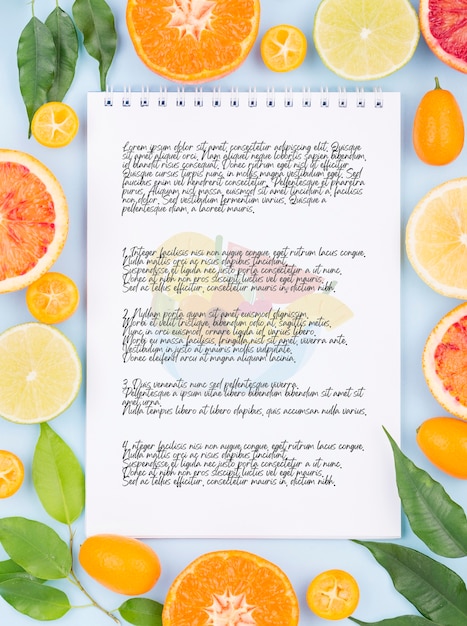 Lorem ipsum dolor sit amet, consectetur adipiscing elit. Quisque
id blandit risus, vitae aliquam neque. Integer lobortis sapien bibendum,
mollis orci et, tempus risus. Nulla sed interdum nisl, id efficitur.
Quisque cursus turpis nunc, at dapibus augue maximus id. Sed
faucibus enim vel hendrerit consectetur. Pellentesque et pharetra
purus. Aliquam varius, massa sit amet tincidunt a, facilisis
non, dolor. Sed vestibulum fermentum varius. Quisque a
pellentesque diam, a laoreet mauris.
1. Integer facilisis nisi non augue congue, eget rutrum lacus congue.
Nulla mattis orci ac risus dapibus tincidunt.
Suspendisse et dapibus ligula, id aliquet nunc.
Donec egestas nec justo porta suscipit luctus eget eros.
Sed ac tellus efficitur, consectetur mauris in, dictum nibh.
2. Nullam porta quam sit amet euismod dignissim.
Morbi et velit tristique, bibendum odio at, sagittis metus.
Nunc in orci euismod, ornare ligula at, varius libero.
Nulla mattis facilisis, fringilla nisl sit amet, viverra ante.
Vestibulum in justo at mauris mollis vulputate.
Donec eleifend arcu at magna aliquam lacinia.
3. Duis venenatis nunc sed pellentesque viverra.
Pellentesque a ipsum vitae libero bibendum bibendum sit amet sit
amet urna.
Nulla tempus libero at libero dapibus, quis accumsan nulla varius.
4. Integer facilisis nisi non augue congue, eget rutrum lacus congue.
Nulla mattis orci ac risus dapibus tincidunt.
Suspendisse et dapibus ligula, id aliquet nunc.
Donec egestas nec justo porta suscipit luctus eget eros.
Sed ac tellus efficitur, consectetur mauris in, dictum nibh.